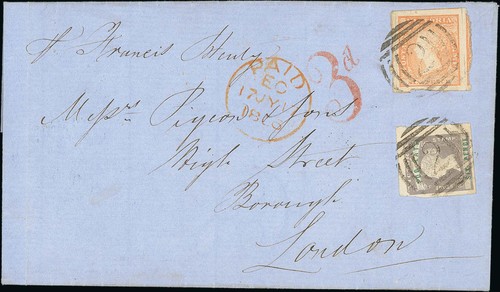 pr Francis Henty
3d
PAID
EC
17 JY
Messrs Pigeon & Sons
High Street
Borough
London